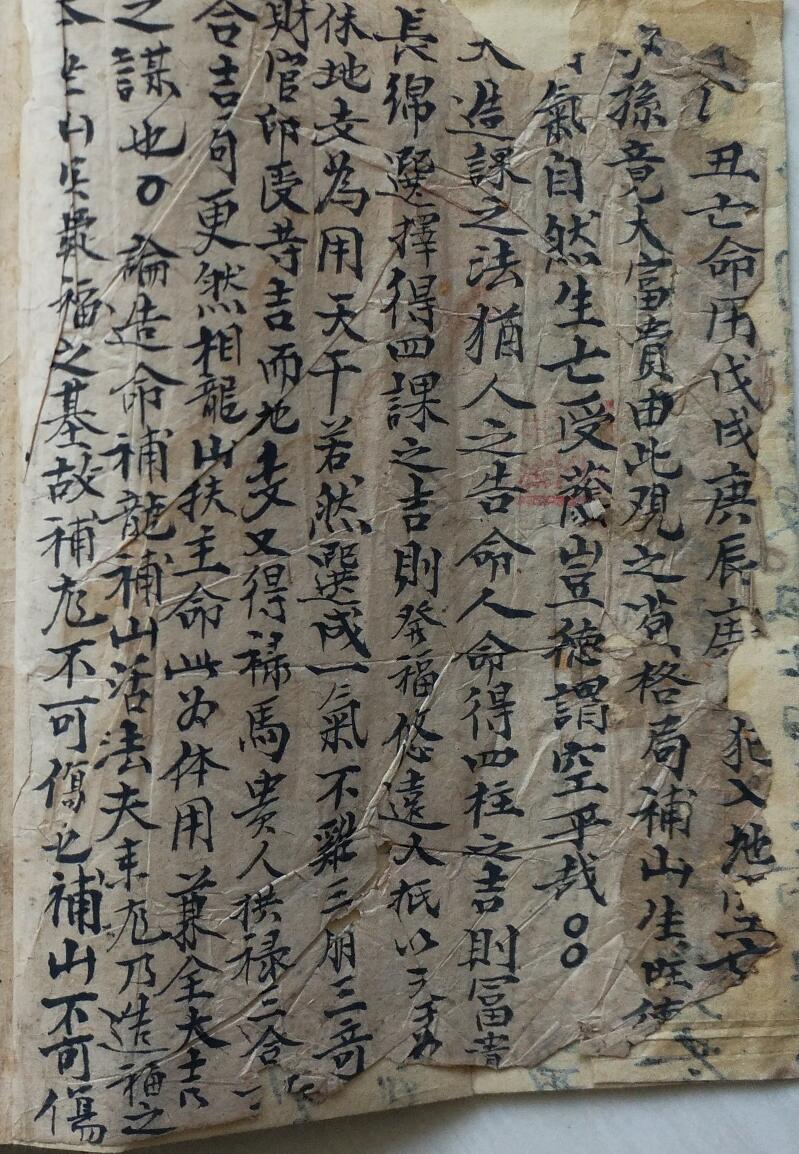 丑亡命用戊戌庚辰庚 犯入地
孫竟大富貴由此观之 格局補山生旺
氣自然生亡受蔭豈徒謂空乎哉○○
造課之法猶人之告命人命得四柱之吉則富
長綿選擇得四課之吉則發福悠遠大抵以天
休地支為用天干若然選成一氣不雜三朋三奇
財官印受等吉而地支又得祿馬貴人拱祿三合
合吉局更然相龍山扶主命此为体用兼全大吉
之謀也○論造命補龍補山活法夫来龙乃造福之
山实发福之基故補龙不可傷也補山不可傷